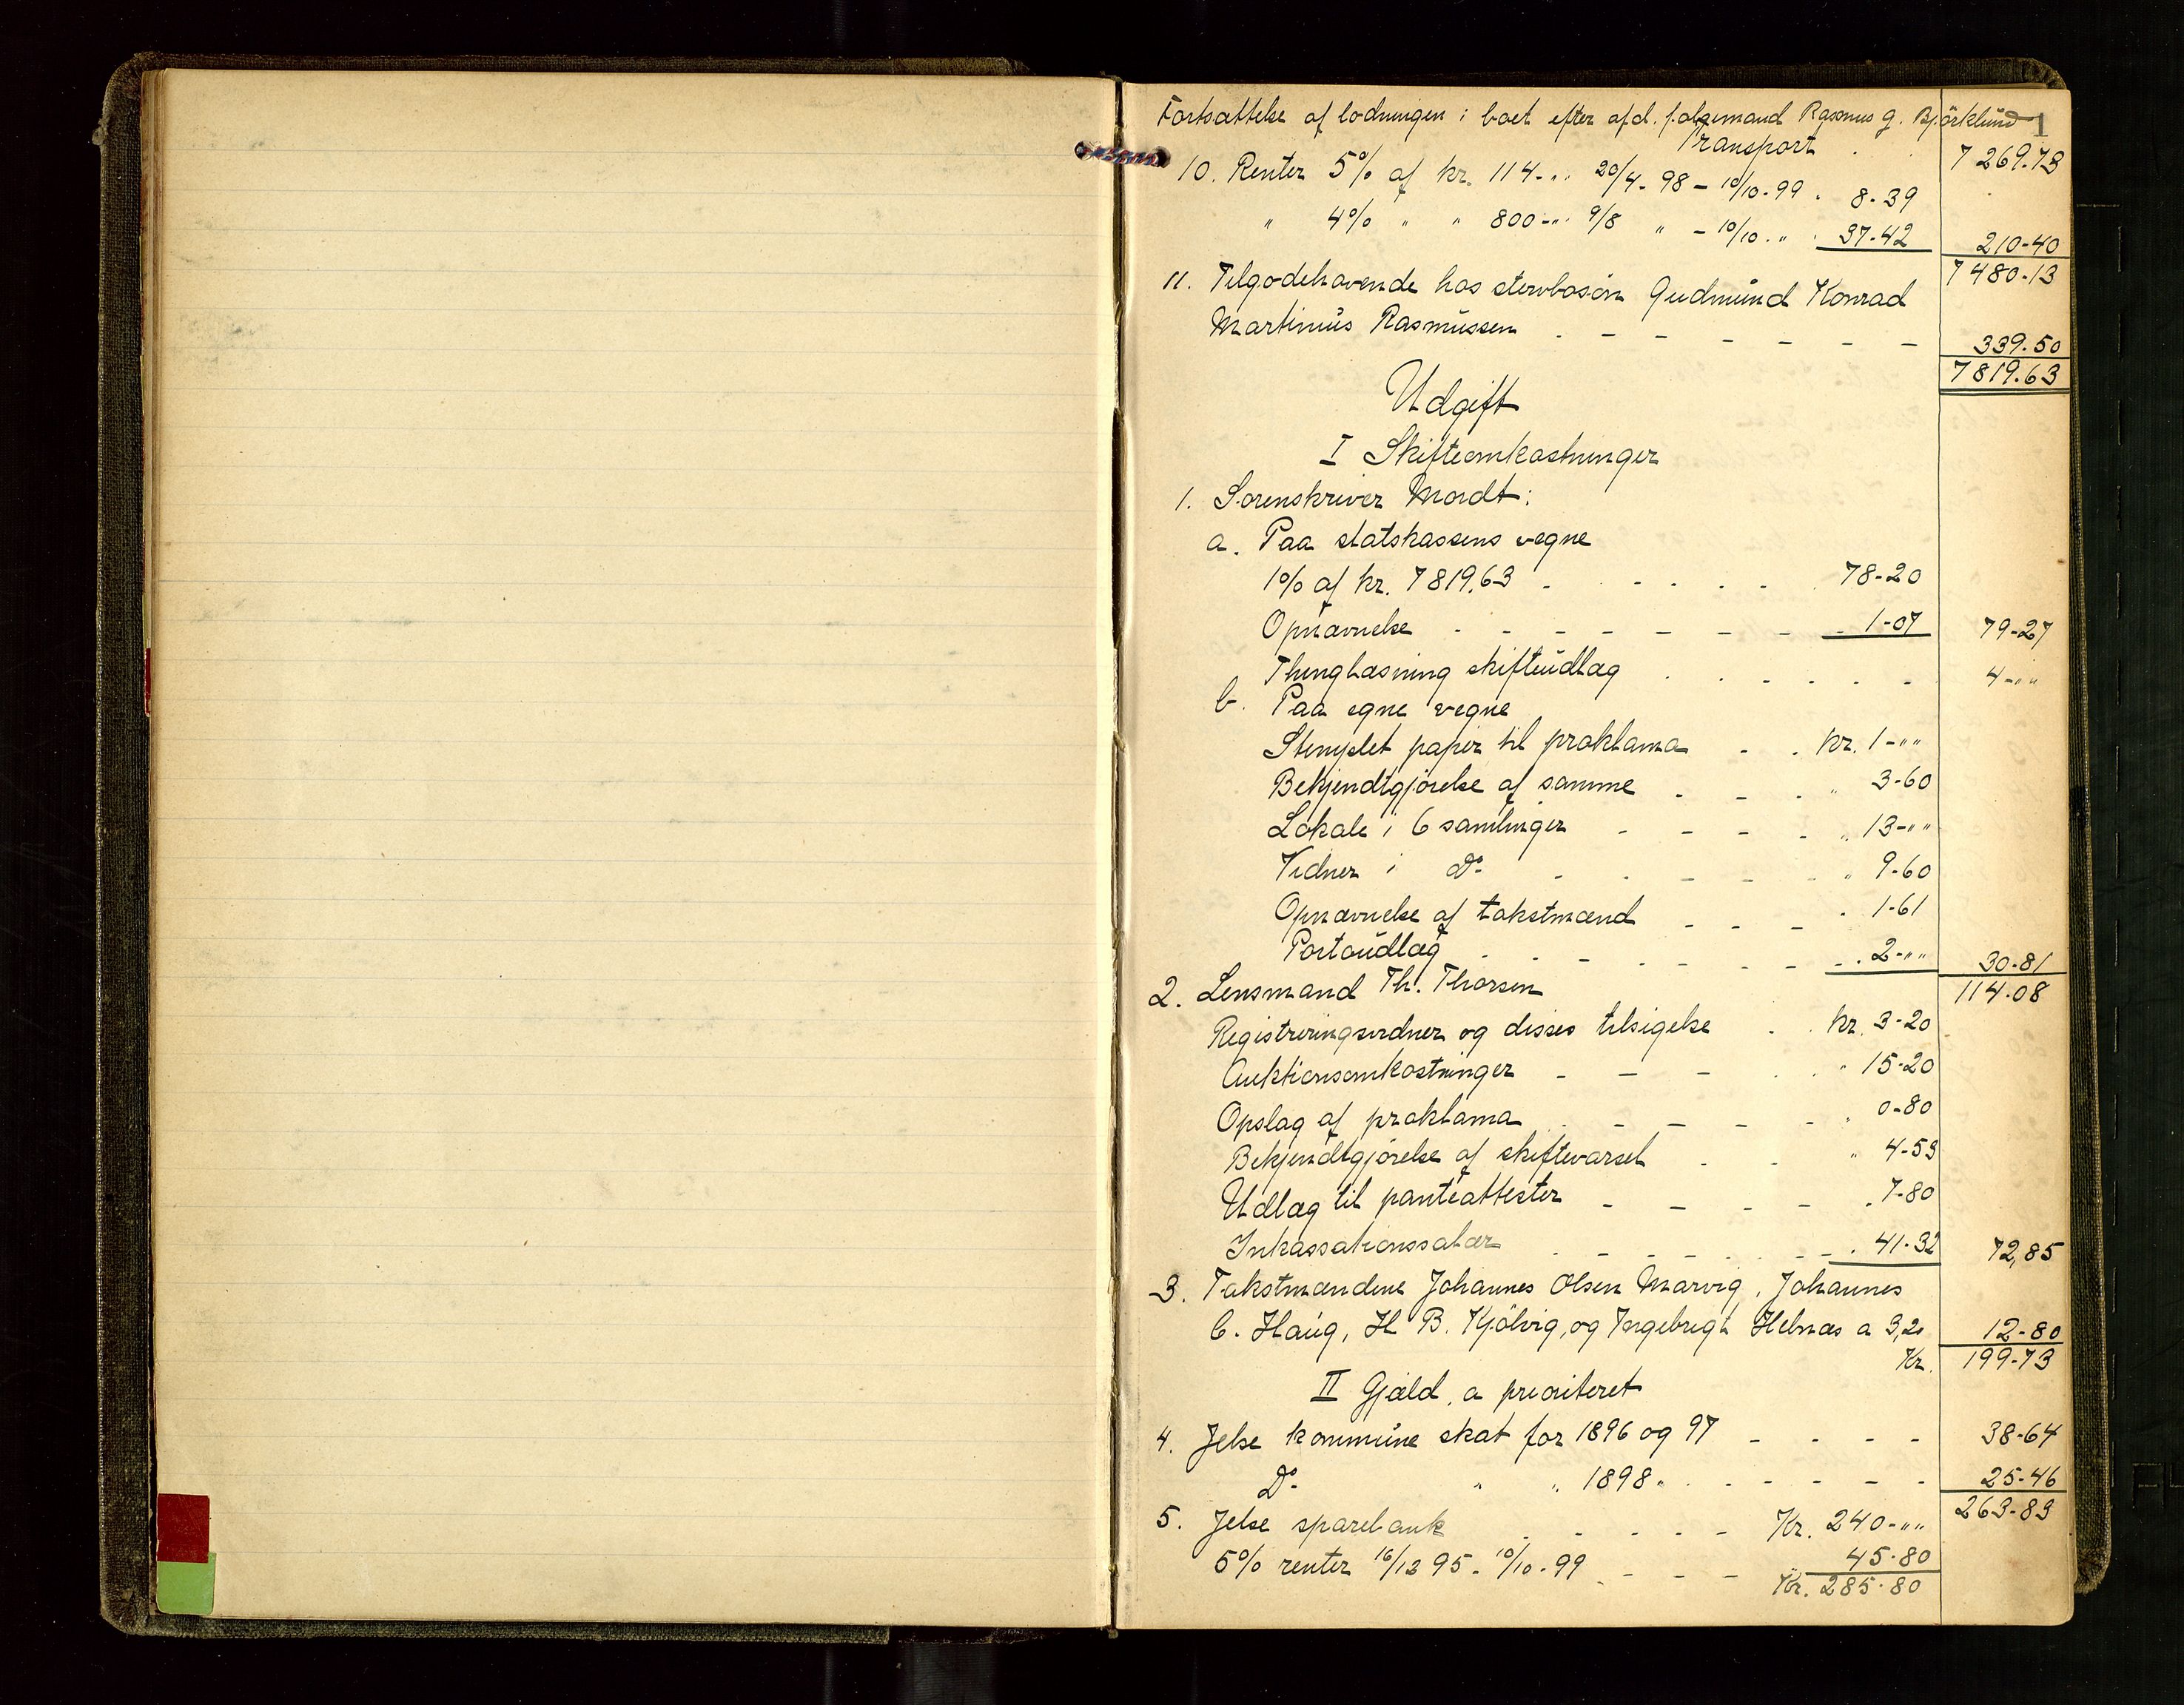 Fortsættelse af lodningen i boet efter afd. Rasmus G. Björklund 1
Transport . . 7 269.73
10. Renter 5% af kr. 114-"" 20/4-98 - 10/10-99 . 8-39
" 4% " " 800-"" 9/8 " - 10/10 . " . 37-42 210-40
7 480-13
11. Tilgodehavende hos stervbosön Gudmund Konrad
Martinius Rasmussen . - - - - - - 339.50
7 819.63
Udgift
I Skifteomkostninger
1. Sorenskriver Mordt:
a. Paa statskassens vegne
1% af kr. 7 819,63 - . . - . - . 78-20
Opnævnelse - - - - - - - . 1-07 79-27
Thinglæsning skifteudlæg . . . - . - - 4-""
b. Paa egne vegne
Stemplet papir til proklama - . kr. 1-""
Bekjendtgjörelse af samme - - . " 3-60
Lokale i 6 samlinger - - - - " 13-""
Vidner i Do - . - - - " 9-60
Opnævnelse af takstmænd - - - . 1-61
Portoudlæg - - - - - - - . 2-"" 30-81
2. Lensmand Th. Thorsen 114-08
Registreringsvidner og disses tilsigelse . . kr. 3-20
Auktionsomkostninger - - - . . " 15-20
Opslag af proklama . - - - - " 0-80
Bekjendtgjörelse af skiftevarsel . - " 4-53
Udlæg til panteattester - - - - . 7-80
Inkassationssalær . - - - - - - . 41-32 72,85
3. Takstmændene Johannes Olsen Marvig, Johannes
C. Haug, H B. Kjölvig, og Ingebrigt Helnæs a 3,20 12-80
Kr. 199-73
II Gjæld, a prioriteret
4. Jelse kommune skat for 1896 og 97 - - - - 38-64
Do " " 1898 " . - - - - - 25-46
263-83
5. Jelse sparebank . - - - - Kr. 240-""
5% renter 16/12 95 - 10/10-99 - - - - 45-80
Kr. 285-80